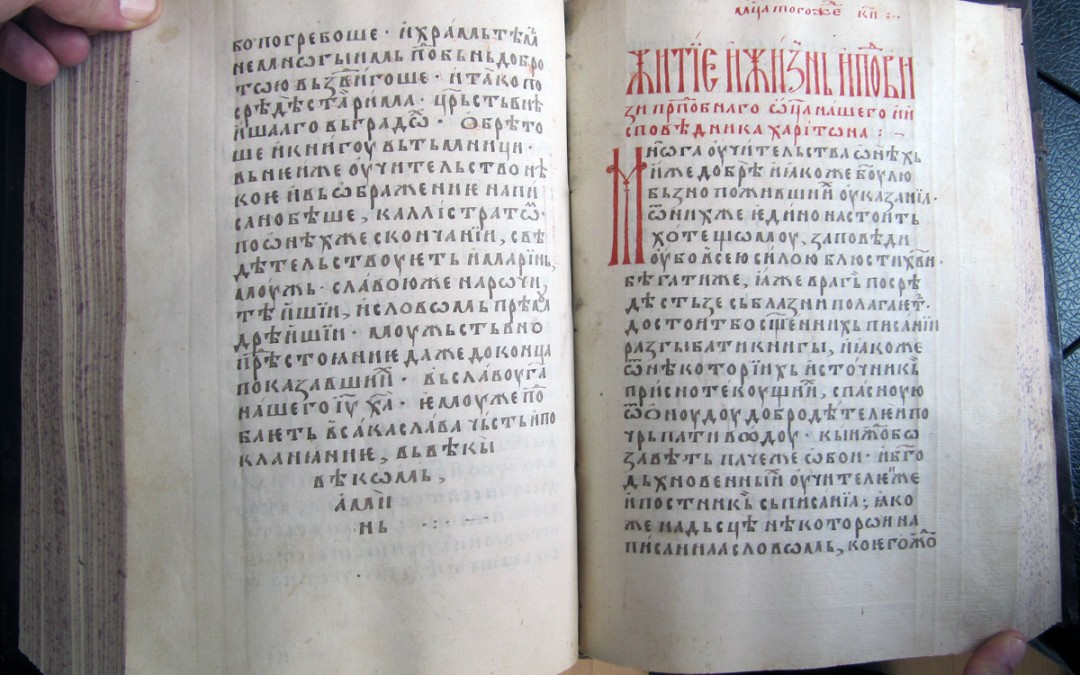 бо погребоше · и҆ храмь тѣм
немногыимь по въ нь добро
тою възⸯдвигоше · и҆ тако по
срѣдѣ старима · црⷭ҇ьствнѣ
и҆шаго въ градѡⷨ · Ѻ҆брѣто
ше и҆ книгоу въ тьмници ·
вь ніеиже оу҆чительство нѣ
кое и҆ въѡ҆бражение напи
сано бѣше, каллїстратѡⷨ ·
по ѡ҆нѣхже скончанїи, свѣ
дѣтельствоуіеть и҆ марїнь,
моужь · славою же нарочи
тѣишїи, и҆ словомь прѣмⷣ
дрѣишїи · моужьствьно
прѣстоꙗние даже до конца
показавшиⷯ · въ славоу гⷭ҇а
нашего і҆ѵ҃ ха҃ · іемоуже пⷪ҇
баіеть всака слава чьсть и҆ по
кланꙗние, въ вѣкы
вѣкѡмь,
а҆ми
нь
мⷭ҇ца тогоже ки :~
Житїе и҆ жизнь и҆ пⷪ҇дви
зи прⷣпⷪ҇бнаго ѡ҆ц҃а нашего и҆ и҆
сповѣдника харїтона : ~
Многа оу҆чительства ѡ҆нѣхь
и҆же добрѣ и҆ ꙗкоже боу҃ лю
бьзно пожившиⷯ оу҆казанїа ·
ѿ нихже іедино настоить
хотещомоу, заповѣди
оу҆бо всею силою блюсти хв҃и ·
бѣгати же, ꙗже врагь посрѣ
дѣ стьзе съблазни полагаетⷮ ·
достоит бо сщ҃енных писанїи
разгыбати книгы, и҆ ꙗкоже
ѿ нѣкоторїихь и҆сточникь
присно текоущиⷯ, спасноую
ѿѻноудоу добродѣтелни по
чрьпати водоу · кы и҆мⷤ ѡбо
завѣть плучеме ѡбои · и҆ бг҃о
дьхновенныⷯ оу҆чителіе и҆же
и҆ постникь съписанїа ; ꙗко
же надьсцѣ нѣкоторои на
писаннаа словѡмь, коегожⷣо